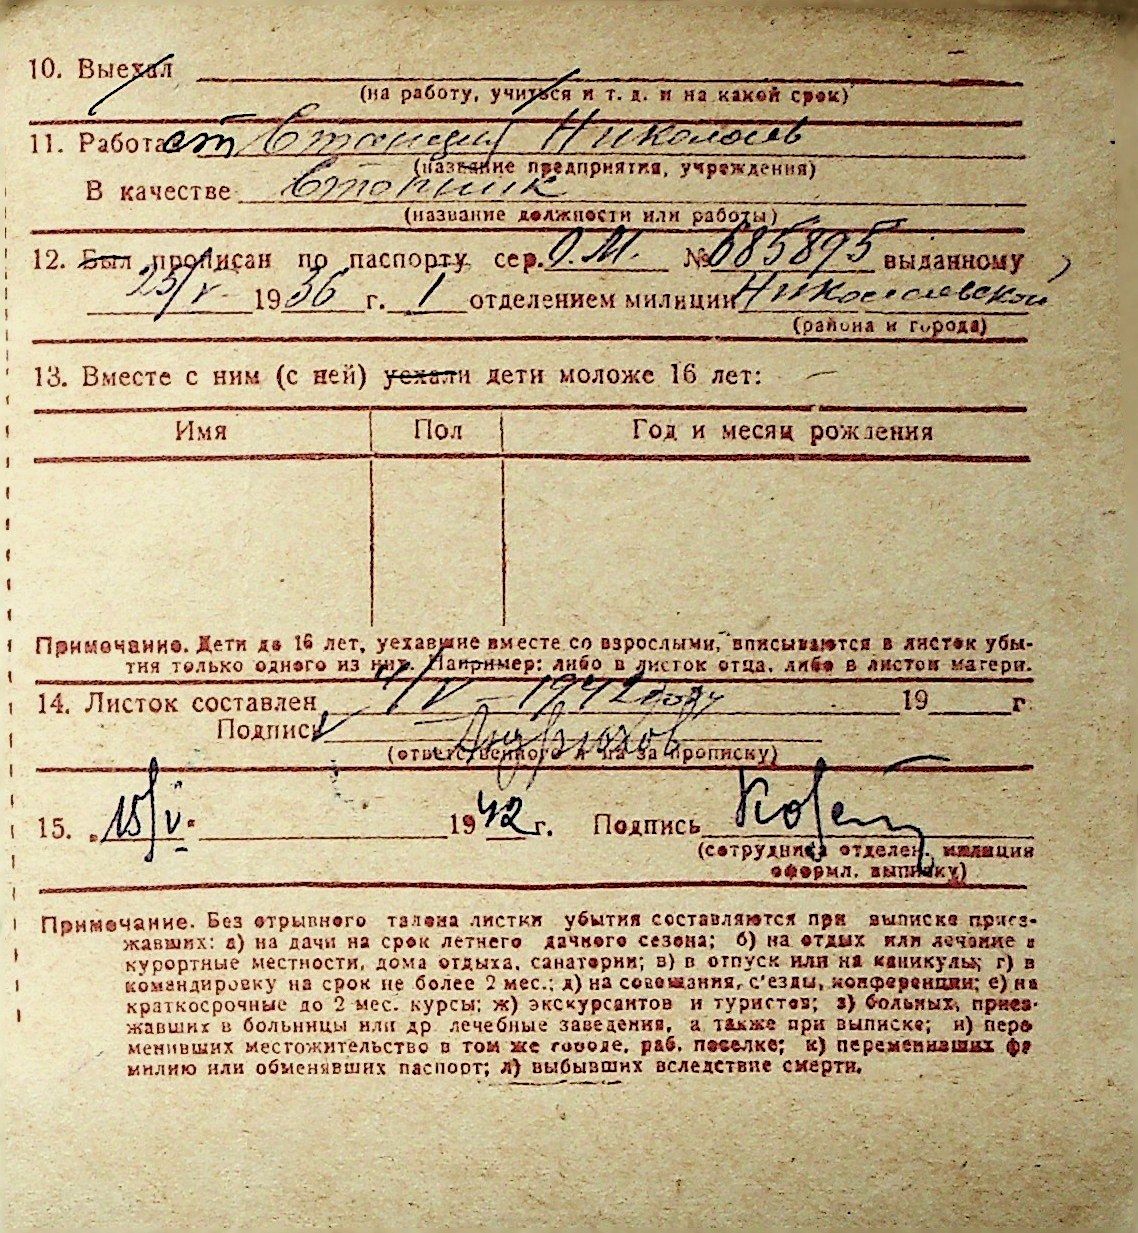 10. Выехал
(на работу, учиться и т. д. и на какой срок)
11. Работает Станция Николаев
(название предприятия, учреждения)
В качестве
(название должности или работы)
12. Был прописан по паспорту сер. О.М. № 685895 выданному
25/V 1936 г. 1 отделением милиции Николаевской
(района и города)
13. Вместе с ним (с ней) уехали дети моложе 16 лет: —
Имя Пол Год и месяц рождения
Примечание. Дети до 16 лет, уехавшие вместе со взрослыми, вписываются в листок убы-
тия только одного из них. Например: либо в листок отца, либо в листок матери.
14. Листок составлен 4/V – 1942 году 19 г
Подпись
(ответственного л-ца за прописку)
15. „15/V“ 1942 г. Подпись
(сотрудника отделен. милиции
оформл. выписку)
Примечание. Без отрывного талона листки убытия составляются при выписке приез-
жавших: а) на дачи на срок летнего дачного сезона; б) на отдых или лечение в
курортные местности, дома отдыха, санатории; в) в отпуск или на каникулы; г) в
командировку на срок не более 2 мес.; д) на совещания, с'езды, конференции; е) на
краткосрочные до 2 мес. курсы; ж) экскурсантов и туристов; з) больных, приез-
жавших в больницы или др лечебные заведения, а также при выписке; и) пере
менивших местожительство в том же городе, раб. поселке; к) переменивших фа
милию или обменявших паспорт; л) выбывших вследствие смерти.